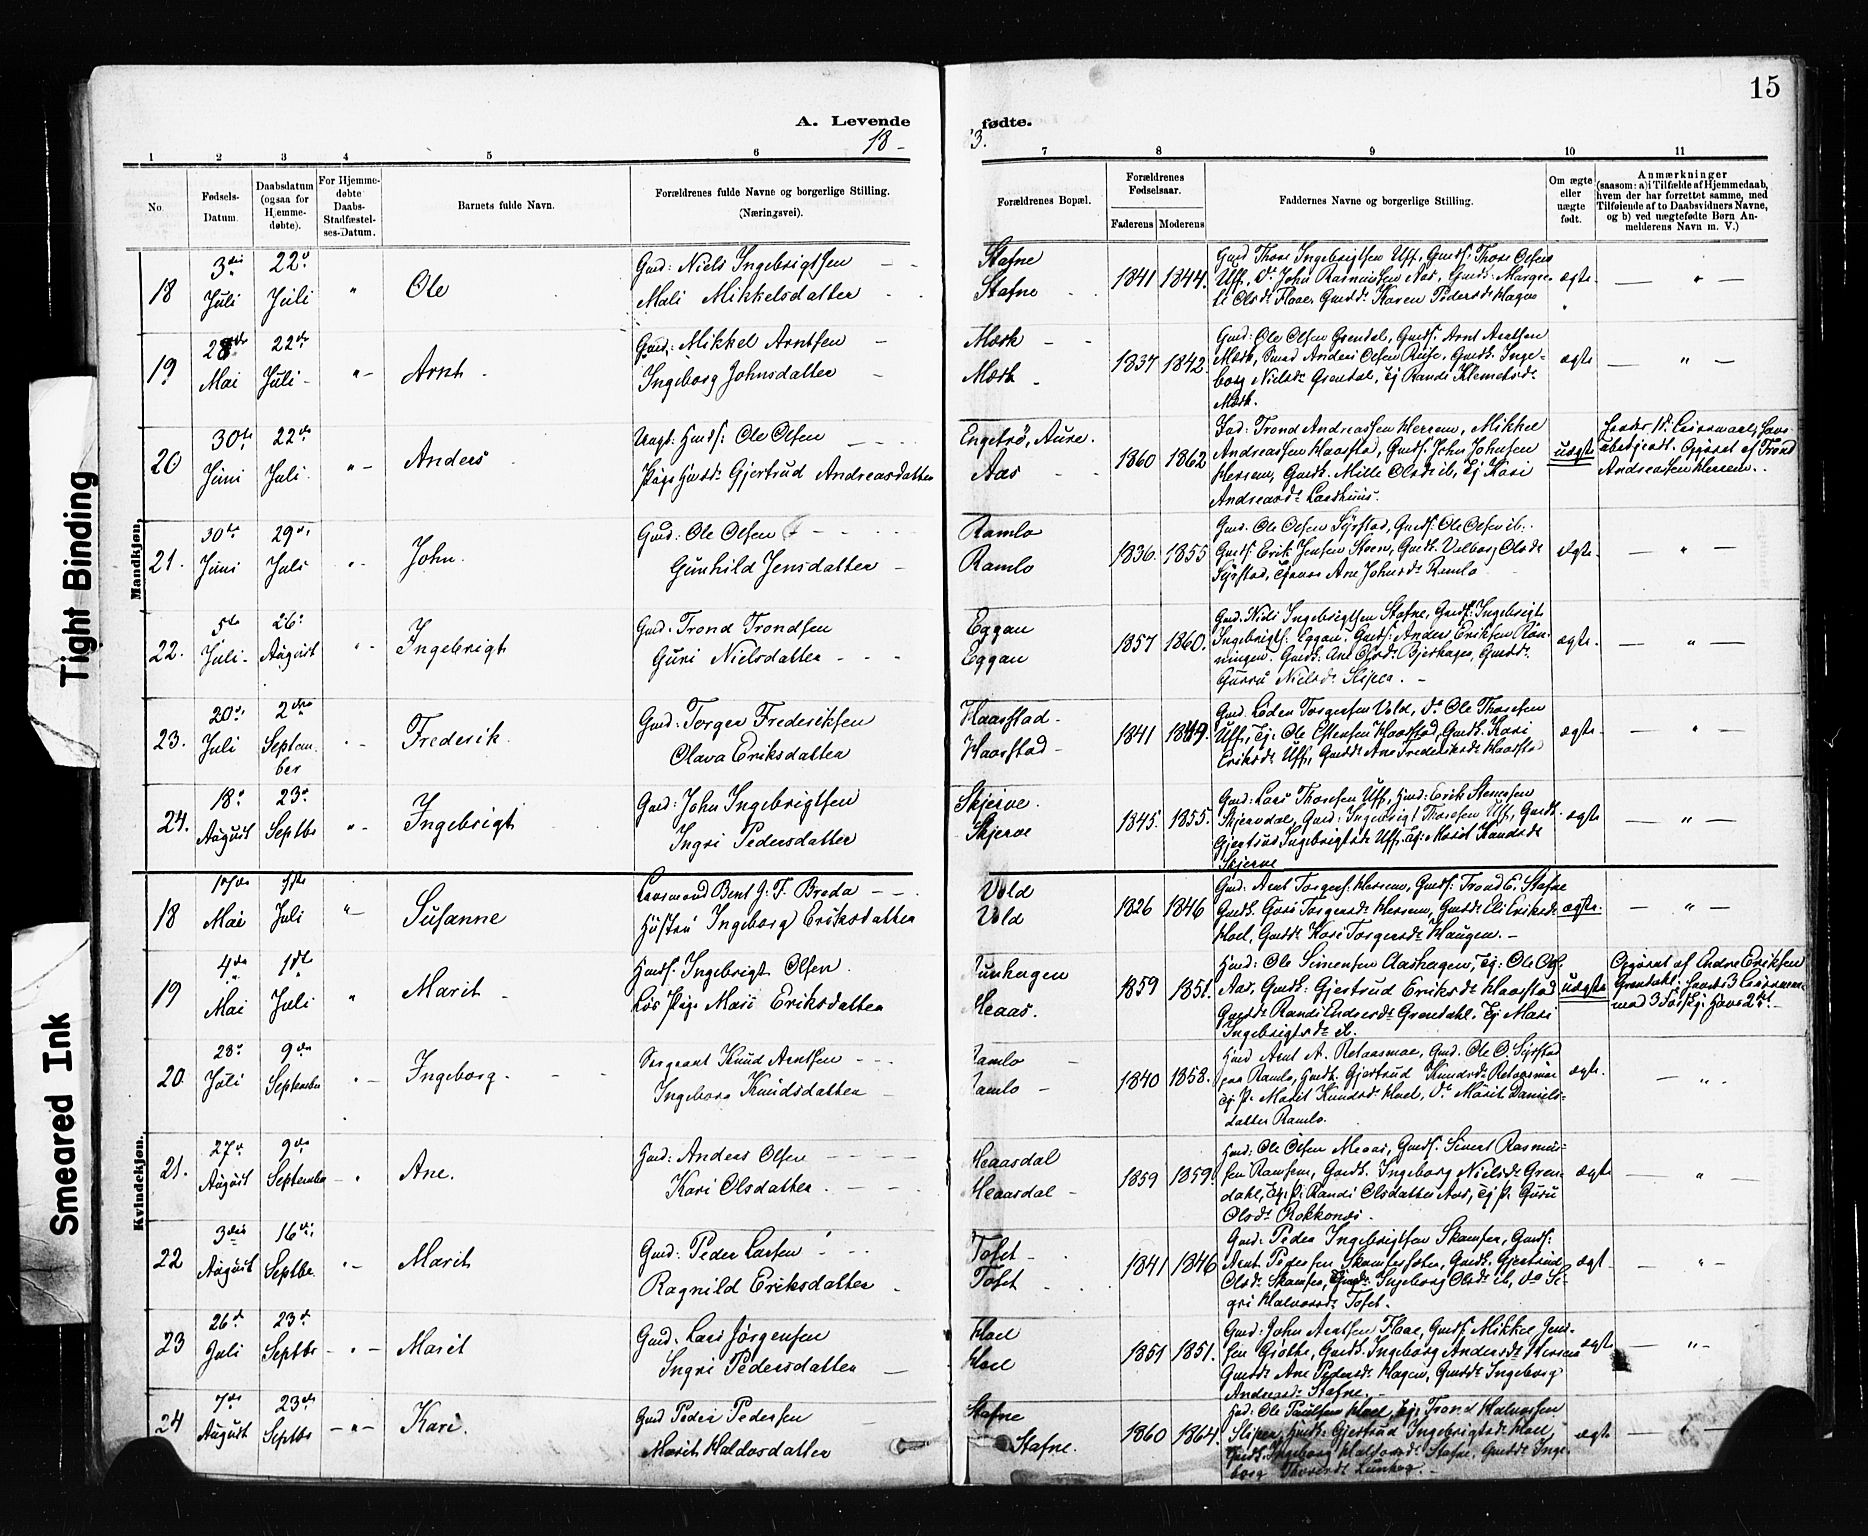 15
A. Levende
fødte.
18 -
3.
1 2 3 4 5 6
7 8 9 10 11
No.
Fødsels-
Datum.
Daabsdatum
(ogsaa for
Hjemme-
døbte).
For Hjemme-
døbte
Daabs-
Stadfæstel-
ses-Datum.
Barnets fulde Navn.
Forældrenes fulde Navne og borgerlige Stilling.
(Næringsvei).
Forældrenes Bopæl.
Forældrenes
Fødselsaar.
Faderens Moderens
Faddernes Navne og borgerlige Stilling.
Om ægte
eller
uægte
født.
Anmærkninger
(saasom: a) i Tilfælde af Hjemmedaab,
hvem der har forrettet samme, med
Tilføiende af to Daabsvidners Navne,
og b) ved uægtefødte Børn An-
melderens Navn m. V.)
Tight Binding
Smeared Ink
Mandkjøn.
18
3die Juli
22d Juli
"
Ole
Gmd: Niels Ingebrigtsen
Mali Mikkelsdatter
Stafne
Stafne
1841 1844.
Gmd Thore Ingebrigtsen Uff, Gmdf. Thore Olsen
Uff, Do John Rasmussen Aas, Gmdk. Margre-
te Olsdt Flaae, Gmddt. Karen Pedersdt Hagen
ægte
— " —
19
28de Mai
22de Juli -
" -
Arnt
Gmd: Mikkel Arntsen
Ingeborg Johnsdatter
Mærk
Mærk
1837 1842.
Gmd: Ole Olsen Grendal, Gmdf. Arnt Arntsen
Mærk, Smed Anders Olsen Reise, Gmdk. Inge-
borg Nielsdt Grendal, Ej Randi Klemetsdt
Mærk.
ægte
— " —
20
30te Juni
22de Juli.
" -
Anders
Ungk: Hmdf: Ole Olsen
Pige Hmddt Gjertrud Andreasdatter
Engetrø, Aure.
Aas
1860 1862
Ind: Trond Andreassen Herrem, Mikkel
Andreassen Haarstad, Gmdf. John Johnsen
Herrem, Gmdk. Mille Olsdt ib, Ej Kari
Andreasdt
uægte
Andreassen Herrem.
21.
30te Juni
29de Juli
" -
John.
Gmd: Ole Olsen
Gunhild Jensdatter
Ramlo
Ramlo
1836. 1855
Gmd. Ole Olsen Syrstad, Gmdf. Ole Olsen ib.
Gmdf. Erik Jensen Steen, Gmdk. Valborg Olsdt
Syrstad, Ane Johnsdt Ramlo
ægte
— " —
22.
5te Juli -
26: August
" -
Ingebrigt
Gmd. Trond Trondsen
Guri Nielsdatter
Eggan
Eggan
1857 1860.
Gmd. Niels Ingebrigtsen Stafne, Gmdf: Ingebrigt
Ingebrigts: Eggan. Gmdf: Anders Eriksen Røn-
ningen. Gmdk: Ane Olsdt Bjerkager, Gmddt.
Gurru Nielsdt Sliper. -
ægte
— " —
23.
20de Juli
2den Septem-
ber
" -
Frederik.
Gmd: Torger Frederiksen
Olava Eriksdatter
Haarstad -
Haarstad -
1841 1849.
Gmd. Løden Torgersen Vold, Do. Ole Thoresen
Uff, Ej: Ole Estensen Haarstad, Gmdk. Kari
Eriksdt Uff, Gmddt. Ane Frederiksdt Haarstad
ægte
— " —
24.
18de August
23de Septbr
" -
Ingebrigt
Gmd: John Ingebrigtsen
Ingri Pedersdatter
Skjerve.
Skjerve
1845. 1855.
Gmd: Lars Thoresen Uff, Gmd: Erik Stenersen
Skjervdal, Gmd: Ingebrigt Thoresen Uff, Gmdk.
Gjertrud Ingebrigtsdt Uff. Ej: Marit Knudsdt
Skjerve
ægte
— " —
Kvindekjøn.
18
17de Mai
1ste Juli
" -
Susanne
Lensmand Bent J. F. Breda
Hustru Ingeborg Eriksdatter
Vold
Vold
1826 1846
Gmd: Arnt Torgers: Herrem, Gmdf: Trond E. Stafne
Gmdk. Guri Torgersdt Herrem, Gmddt Eli Eriksdt
Hoel, Gmddt. Kari Torgersdt Haugen. -
ægte.
— " —
19
4de Mai
1ste Juli
"
Marit
Hmdf. Ingebrigt Olsen.
Løs Pige Mari Eriksdatter
Lunhagen
Meaas.
1859 1851.
Hmd: Ole Simensen Aashagen, Ej: Ole Ols.
Aas, Gmdk: Gjertrud Eriksdt Haarstad
Gmddt Randi Endresdt Grendahl. Ej Mari
Ingebrigtsdt ib.
uægte
Opgivet af Endre Eriksen
Grendahl:
20
28de Juli
9de September
" -
Ingeborg.
Sergeant Knud Arntsen
Ingeborg Knudsdatter
Ramlo
Ramlo -
1840 1858.
Hmd Arnt A. Retaasmoe, Gmd. Ole O. Syrstad
paa Ramlo, Gmdk. Gjertrud Knudsdt Retaasmoe
Ej P. Marit Knudsdt Hoel, Do Marit Daniels-
datter Ramlo.
ægte.
— " -
21.
27de August
9de September
"
Ane.
Hmd: Anders Olsen
Kari Olsdatter.
Meaasdal
Meaasdal -
1859 1859.
Hmd: Ole Olsen Meaas, Gmdf. Sivert Rasmus-
sen Ramsem, Gmdk. Ingeborg Nielsdt Gren-
dahl, Ej: P: Randi Olsdatter Aas, Ej P. Guru
Olsdt Rokkones.
ægte
— " —
22
3die August
16de Septbr.
" -
Marit
Gmd: Peder Larsen
Ragnild Eriksdatter
Tofet -
Tofet -
1841 1846
Gmd: Peder Ingebrigtsen Skamfer, Gmdf:
Arnt Pedersen, Gmdk. Gjertrud
Olsdt Skamfer, Gmddt Ingeborg Olsdt ib, Do Si-
gri Halvorsdt Tofet.
ægt-
— " —
23
26de Juli
23de Septbr
— " —
Marit
Gmd. Lars Jørgensen
Ingri Pedersdatter
Hoel
Hoel
1851 1851.
Gmd: John Arntsen Flaae, Gmdf: Mikkel Jen-
sen Grøtte, Gmdk. Ingeborg Andersdt Herrem
Gmddt Ane Pedersdt Hagen, Gmddt. Ingeborg
Andreasdt Stafne. -
ægte
— " —
24
7de August
23de Septbr
— " —
Kari.
Gmd Peder Pedersen
Marit Haldosdatter
Stafne
Stafne.
1860 1864.
Gmd. Ole Paulsen Hoel, Ej. Trond Halvorsen
Sliper, Gmdk: Gjertrud Ingebrigtsdt Hoel,
Gmdk. Ingeborg Halvorsdt Stafne, Gmddt. Inge-
borg Thoresdt Lunhag. -
ægte
— " —